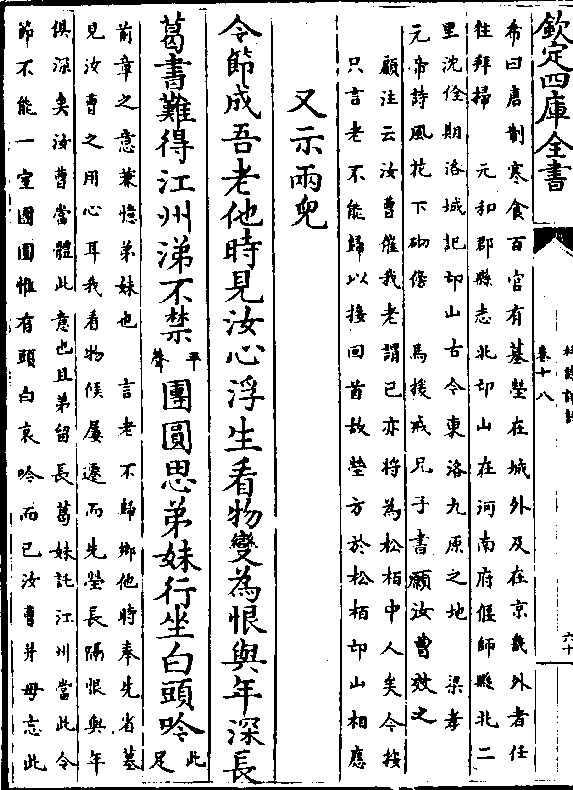 欽定四庫全書
杜詩詳註
卷十八
六十
希曰唐制寒食百官有墓塋在城外及在京畿外者任
往拜掃　元和郡縣志北邙山在河南府偃師縣北二
里沈佺期洛城記邙山古今東洛九原之地　梁孝
元帝詩風花下砌傍　馬援戒兄子書願汝曹效之
顧注云汝曹催我老謂已亦將為松栢中人矣今按
只言老不能歸以接回首故塋方於松栢邙山相應
又示兩兒
令節成吾老他時見汝心浮生看物變為恨與年深長
葛書難得江州涕不禁平聲團圓思弟妹行坐白頭吟此足
前章之意兼憶弟妹也　言老不歸鄉他時奉先省墓
見汝曹之用心耳我看物候屢遷而先塋長隔恨與年
俱深矣汝曹當體此意也且弟留長葛妹託江州當此令
節不能一室團圓惟有頭白哀吟而已汝曹并毋忘此